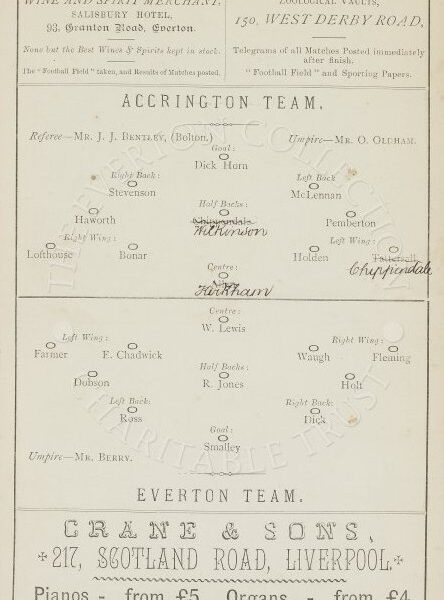 WINE AND SPIRIT MERCHANT,
SALISBURY HOTEL,
93, Granton Road, Everton.
None but the Best Wines & Spirits kept in stock.
The "Football Field" taken, and Results of Matches posted.
ZOOLOGICAL VAULTS,
150, WEST DERBY ROAD,
Telegrams of all Matches Posted immediately
after finish.
"Football Field" and Sporting Papers.
ACCRINGTON TEAM.
Referee—MR. J. J. BENTLEY, (Bolton.)
Umpire—MR. O. OLDHAM.
Goal:
Dick Horn
Right Back:
Stevenson
Left Back
McLennan
Half Backs:
Haworth
Chippendale
Wilkinson
Pemberton
Right Wing:
Left Wing:
Lofthouse
Bonar
Holden
Tattersall
Chippendale
Centre:
Kirkham
Centre:
W. Lewis
Left Wing:
Right Wing:
Farmer
E. Chadwick
Waugh
Fleming
Half Backs:
Dobson
R. Jones
Holt
Left Back:
Right Back:
Ross
Dick
Goal:
Smalley
Umpire—MR. BERRY.
EVERTON TEAM.
CRANE & SONS,
217, SCOTLAND ROAD, LIVERPOOL.
Pianos - from £5. Organs - from £4
THE EVERTON COLLECTION
CHARITABLE TRUST